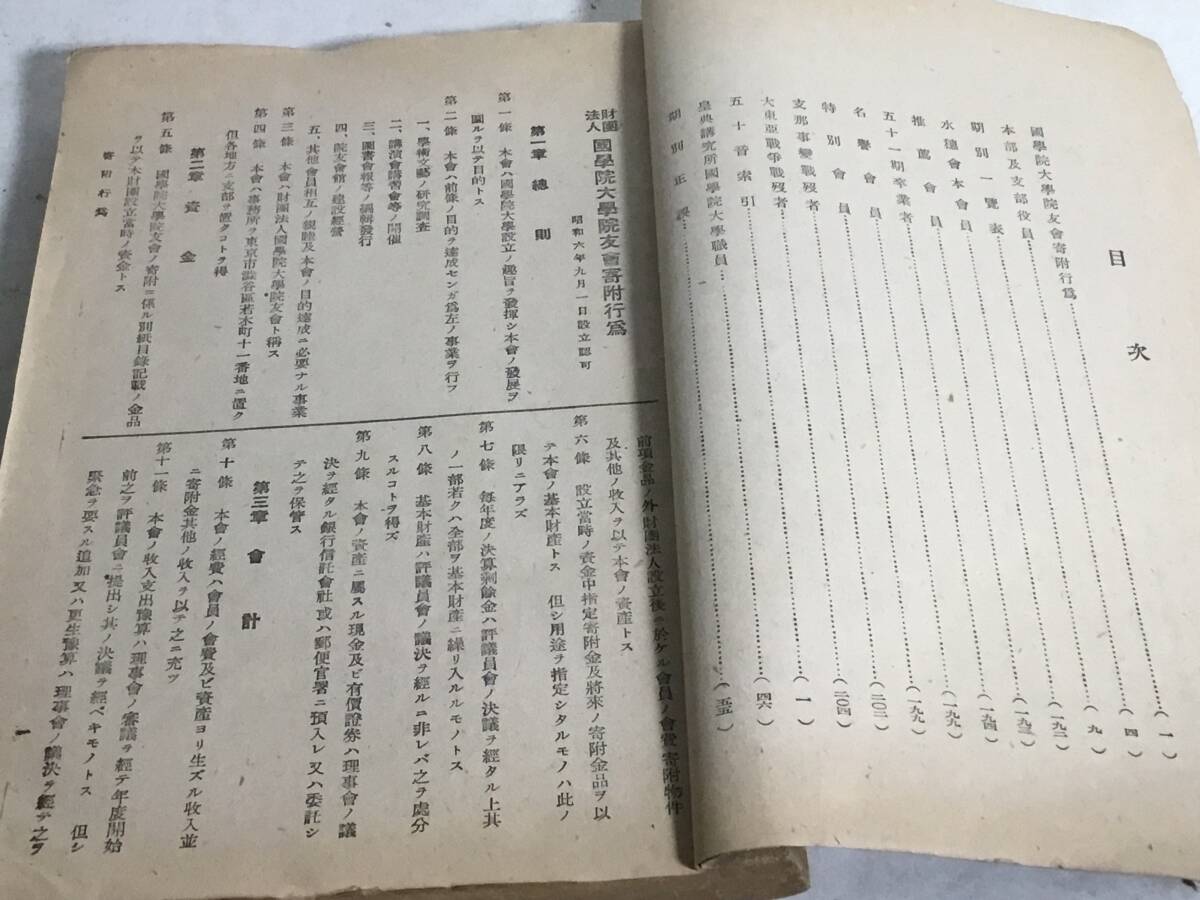 目次
國學院大學院友會寄附行爲………(一)
本部及支部役員………(四)
期別一覽表………(九)
水穗會本會員………(一九二)
推薦會員………(一九三)
五十一期卒業者………(一九四)
名譽會員………(一九九)
特別會員………(一九九)
支那事變戰歿者………(二〇二)
大東亞戰爭戰歿者………(二〇四)
五十音索引………(一)
皇典講究所國學院大學職員………(四六)
期別正誤………(五五)
財團法人 國學院大學院友會寄附行爲
昭和六年九月一日設立認可
第一章 總則
第一條 本會ハ國學院大學設立ノ趣旨ヲ發揮シ本會ノ發展ヲ
圖ルヲ以テ目的トス
第二條 本會ハ前條ノ目的ヲ達成センガ爲左ノ事業ヲ行フ
一、學術文藝ノ硏究調査
二、講演會講習會等ノ開催
三、圖書會報等ノ編輯發行
四、院友會館ノ建設經營
五、其他會員相互ノ親睦及本會ノ目的達成ニ必要ナル事業
第三條 本會ハ財團法人國學院大學院友會ト稱ス
第四條 本會ハ事務所ヲ東京市澁谷區若木町十一番地ニ置ク
但各地方ニ支部ヲ置クコトヲ得
第二章 資金
第五條 國學院大學院友會ノ寄附ニ係ル別紙目錄記載ノ金品
ヲ以テ本財團設立當時ノ資金トス
寄附行爲
前項金品ノ外財團法人設立後ニ於ケル會員ノ會費寄附物件
及其他ノ收入ヲ以テ本會ノ資產トス
第六條 設立當時ノ資金中指定寄附金及將來ノ寄附金品ヲ以
テ本會ノ基本財產トス 但シ用途ヲ指定シタルモノハ此ノ
限リニアラズ
第七條 每年度ノ決算剩餘金ハ評議員會ノ決議ヲ經タル上其
ノ一部若クハ全部ヲ基本財產ニ繰リ入ルルモノトス
第八條 基本財產ハ評議員會ノ議決ヲ經ルニ非レバ之ヲ處分
スルコトヲ得ズ
第九條 本會ノ資產ニ屬スル現金及ビ有價證券ハ理事會ノ議
決ヲ經タル銀行信託會社或ハ郵便官署ニ預入レ又ハ委託シ
テ之ヲ保管ス
第三章 會計
第十條 本會ノ經費ハ會員ノ會費及ビ資產ヨリ生ズル收入並
ニ寄附金其他ノ收入ヲ以テ之ニ充ツ
第十一條 本會ノ收入支出豫算ハ理事會ノ審議ヲ經テ年度開始
前之ヲ評議員會ニ提出シ其ノ決議ヲ經ベキモノトス 但シ
緊急ヲ要スル追加又ハ更生豫算ハ理事會ノ議決ヲ經テ之ヲ
一